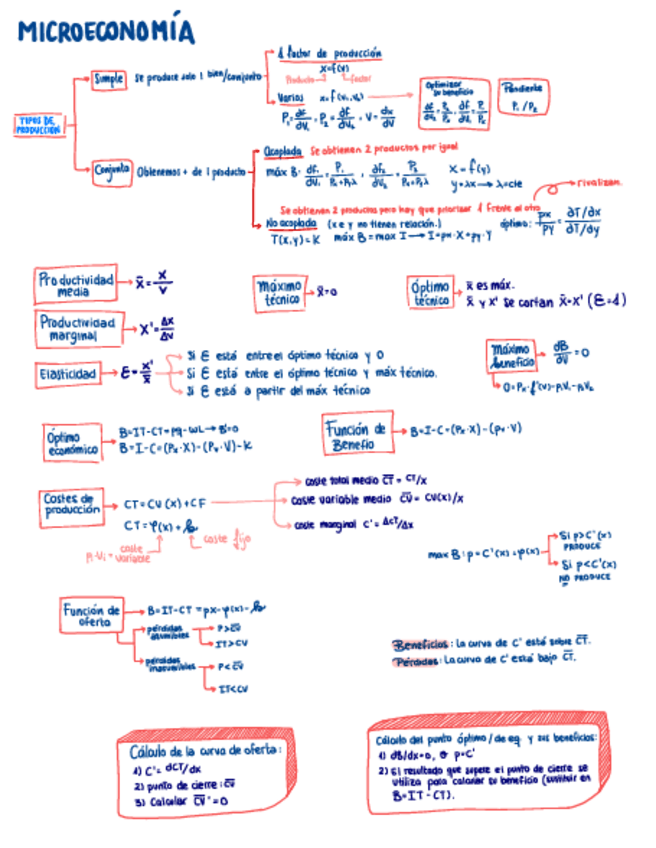 MICROECONOMÍA
TIPOS DE PRODUCCIÓN
Simple
Se produce solo 1 bien/conjunto
1 factor de producción
x=f(v)
Producto
factor
Varios x=f(v₁,v₂)
Optimizar su beneficio
Pendiente
P₁/P₂
Conjunta
Obtenemos + de 1 producto
Acoplada Se obtienen 2 productos por igual
x=f(y)
y=λx → λ=cte
rivalizan.
Se obtienen 2 productos pero hay que priorizar 1 frente al otro
No acoplada (x e y no tienen relación.)
T(x,y)=K máx B=max I → I=px·X+py·Y
óptimo: px/py = ∂T/dx / ∂T/dy
Productividad media
x̄=x/v
Máximo técnico
x̄=0
Óptimo técnico
x̄ es máx.
x̄ y x' se cortan x̄=x' (Ɛ=1)
Productividad marginal
X'=Δx/Δv
Elasticidad
Ɛ=x'/x̄
Si Ɛ está entre el óptimo técnico y 0
Si Ɛ está entre el óptimo técnico y máx técnico.
Si Ɛ está a partir del máx técnico
Máximo beneficio
dB/dV=0
Óptimo económico
B=I-C=(Pₓ·X)-(Pᵥ·V)-K
Función de Benefio
B=I-C=(Pₓ·X)-(Pᵥ·V)
Costes de producción
CT=CV(x)+CF
coste total medio C̅T̅=CT/x
coste variable medio C̅V̅=CV(x)/x
coste marginal C'=ΔCT/Δx
CT=φ(x)+h
coste variable
coste fijo
max B:p=C'(x)=φ(x)
Si p>C'(x) PRODUCE
Si p<C'(x) NO PRODUCE
Función de oferta
B=IT-CT=px-φ(x)-h
pérdidas asumibles
P>C̅V̅
IT>CV
pérdidas
P<C̅V̅
IT<CV
Beneficios: La curva de C' está sobre C̅T̅.
Pérdidas: La curva de C' está bajo C̅T̅.
Cálculo de la curva de oferta:
1) C'= dCT/dx
2) punto de cierre: C̅V̅
3) Calcular C̅V̅'=0
Cálculo del punto óptimo/de eq. y sus beneficios:
1) dB/dx=0, o p=C'
2) El resultado que supere el punto de cierre se
utiliza para calcular su beneficio (sustituir en
B=IT-CT).